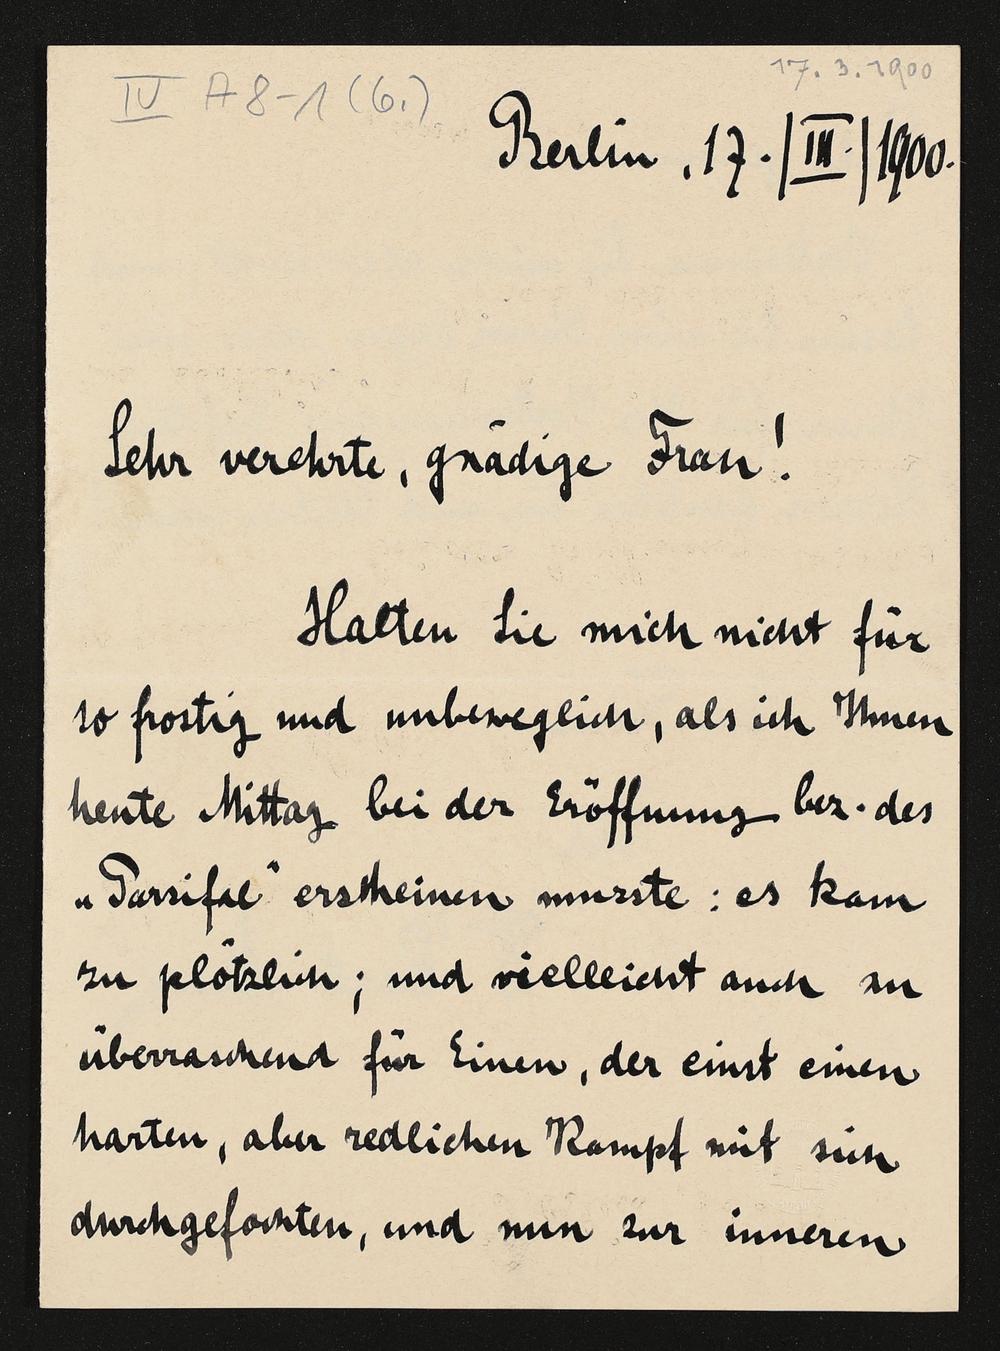 IV A 8-1 (6.)
17. 3. 1900
Berlin, 17. |III.| 1900.
Sehr verehrte, gnädige Frau!
Halten Sie mich nicht für
so frostig und unbeweglich, als ich Ihnen
heute Mittag bei der Eröffnung bez. des
„Parsifal" erscheinen musste: es kam
zu plötzlich; und vielleicht auch zu
überraschend für Einen, der einst einen
harten, aber redlichen Kampf mit sich
durchgefochten, und nun zur inneren